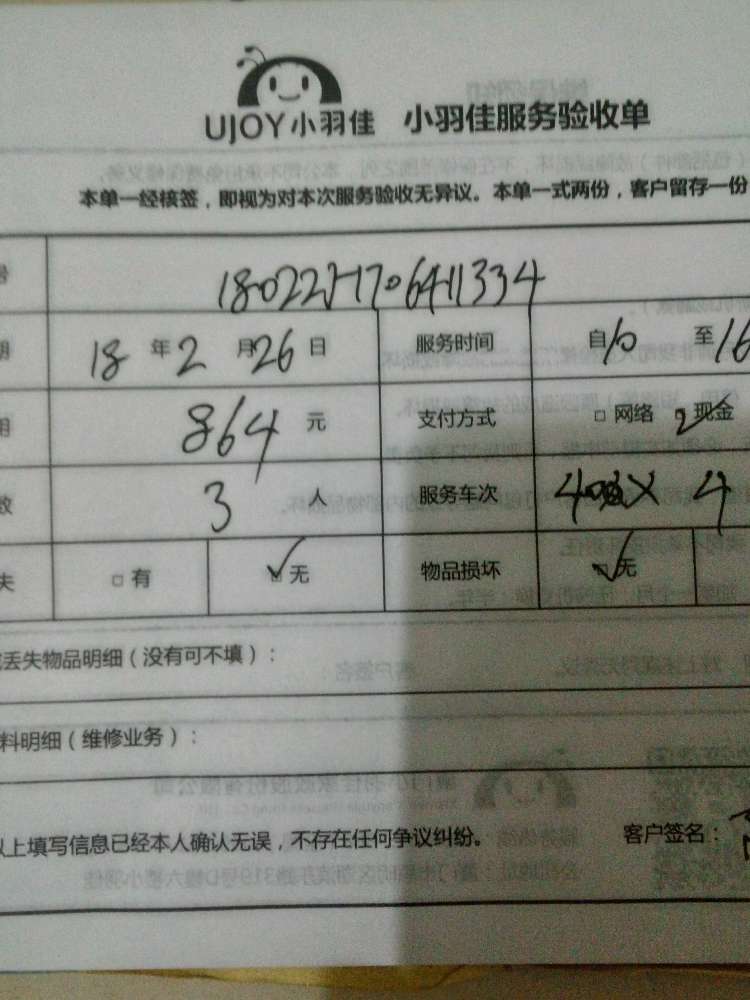 UJOY小羽佳 小羽佳服务验收单
本单一经核签，即视为对本次服务验收无异议。本单一式两份，客户留存一份
号
18年2月26日 服务时间 自10 至16
用 864元 支付方式 □ 网络 □ 现金
数 3人 服务车次 4
失 □ 有 □ 无 物品损坏 □ 无
丢失物品明细（没有可不填）：
料明细（维修业务）：
以上填写信息已经本人确认无误，不存在任何争议纠纷。 客户签名：